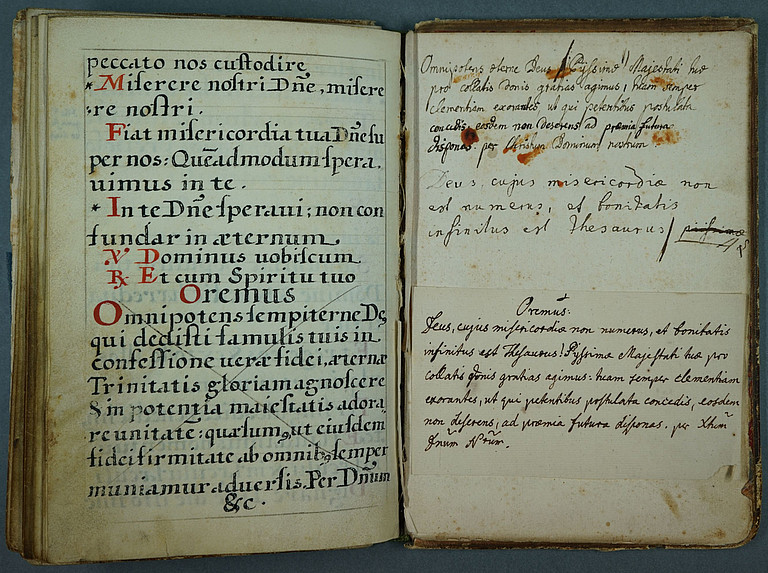 peccato nos custodire
* Miserere nostri Dñe, misere
re nostri.
Fiat misericordia tua Dñe su
per nos: Quẽadmodum spera.
uimus in te.
* In te Dñe speraui; non con
fundar in æternum
℣ Dominus uobiscum
℟ Et cum Spiritu tuo
Oremus
Omnipotens sempiterne Dẹ
qui dedisti famulis tuis in
confessione ueræ fidei, æternæ
Trinitatis gloriam agnoscere
& in potentia maiestatis adora,
re unitatẽ: quæsumꝰ, ut eiusdem
fidei firmitate ab omnibꝰ semper
muniamur aduersis. Per Dñum
&c.
Omnipotens æterne Deus / Pyssimæ Majestati tuæ
pro collatis donis gratias agimus, tuam semper
clementiam exorantes ut qui petentibus postulata
concedis, eosdem non deserens ad præmia futura
disponas. per Christum Dominum nostrum.
Deus, cujus misericordiæ non
est numerus, et bonitatis
infinitus est Thesaurus / piissimæ
Oremus:
Deus, cujus misericordiæ non numerus, et bonitatis
infinitus est Thesaurus: Pyssimæ Majestati tuæ pro
collatis donis gratias agimus: tuam semper clementiam
exorantes, ut qui petentibus postulata concedis, eosdem
non deserens, ad præmia futura disponas. per Xtum
Dnum Nrum.